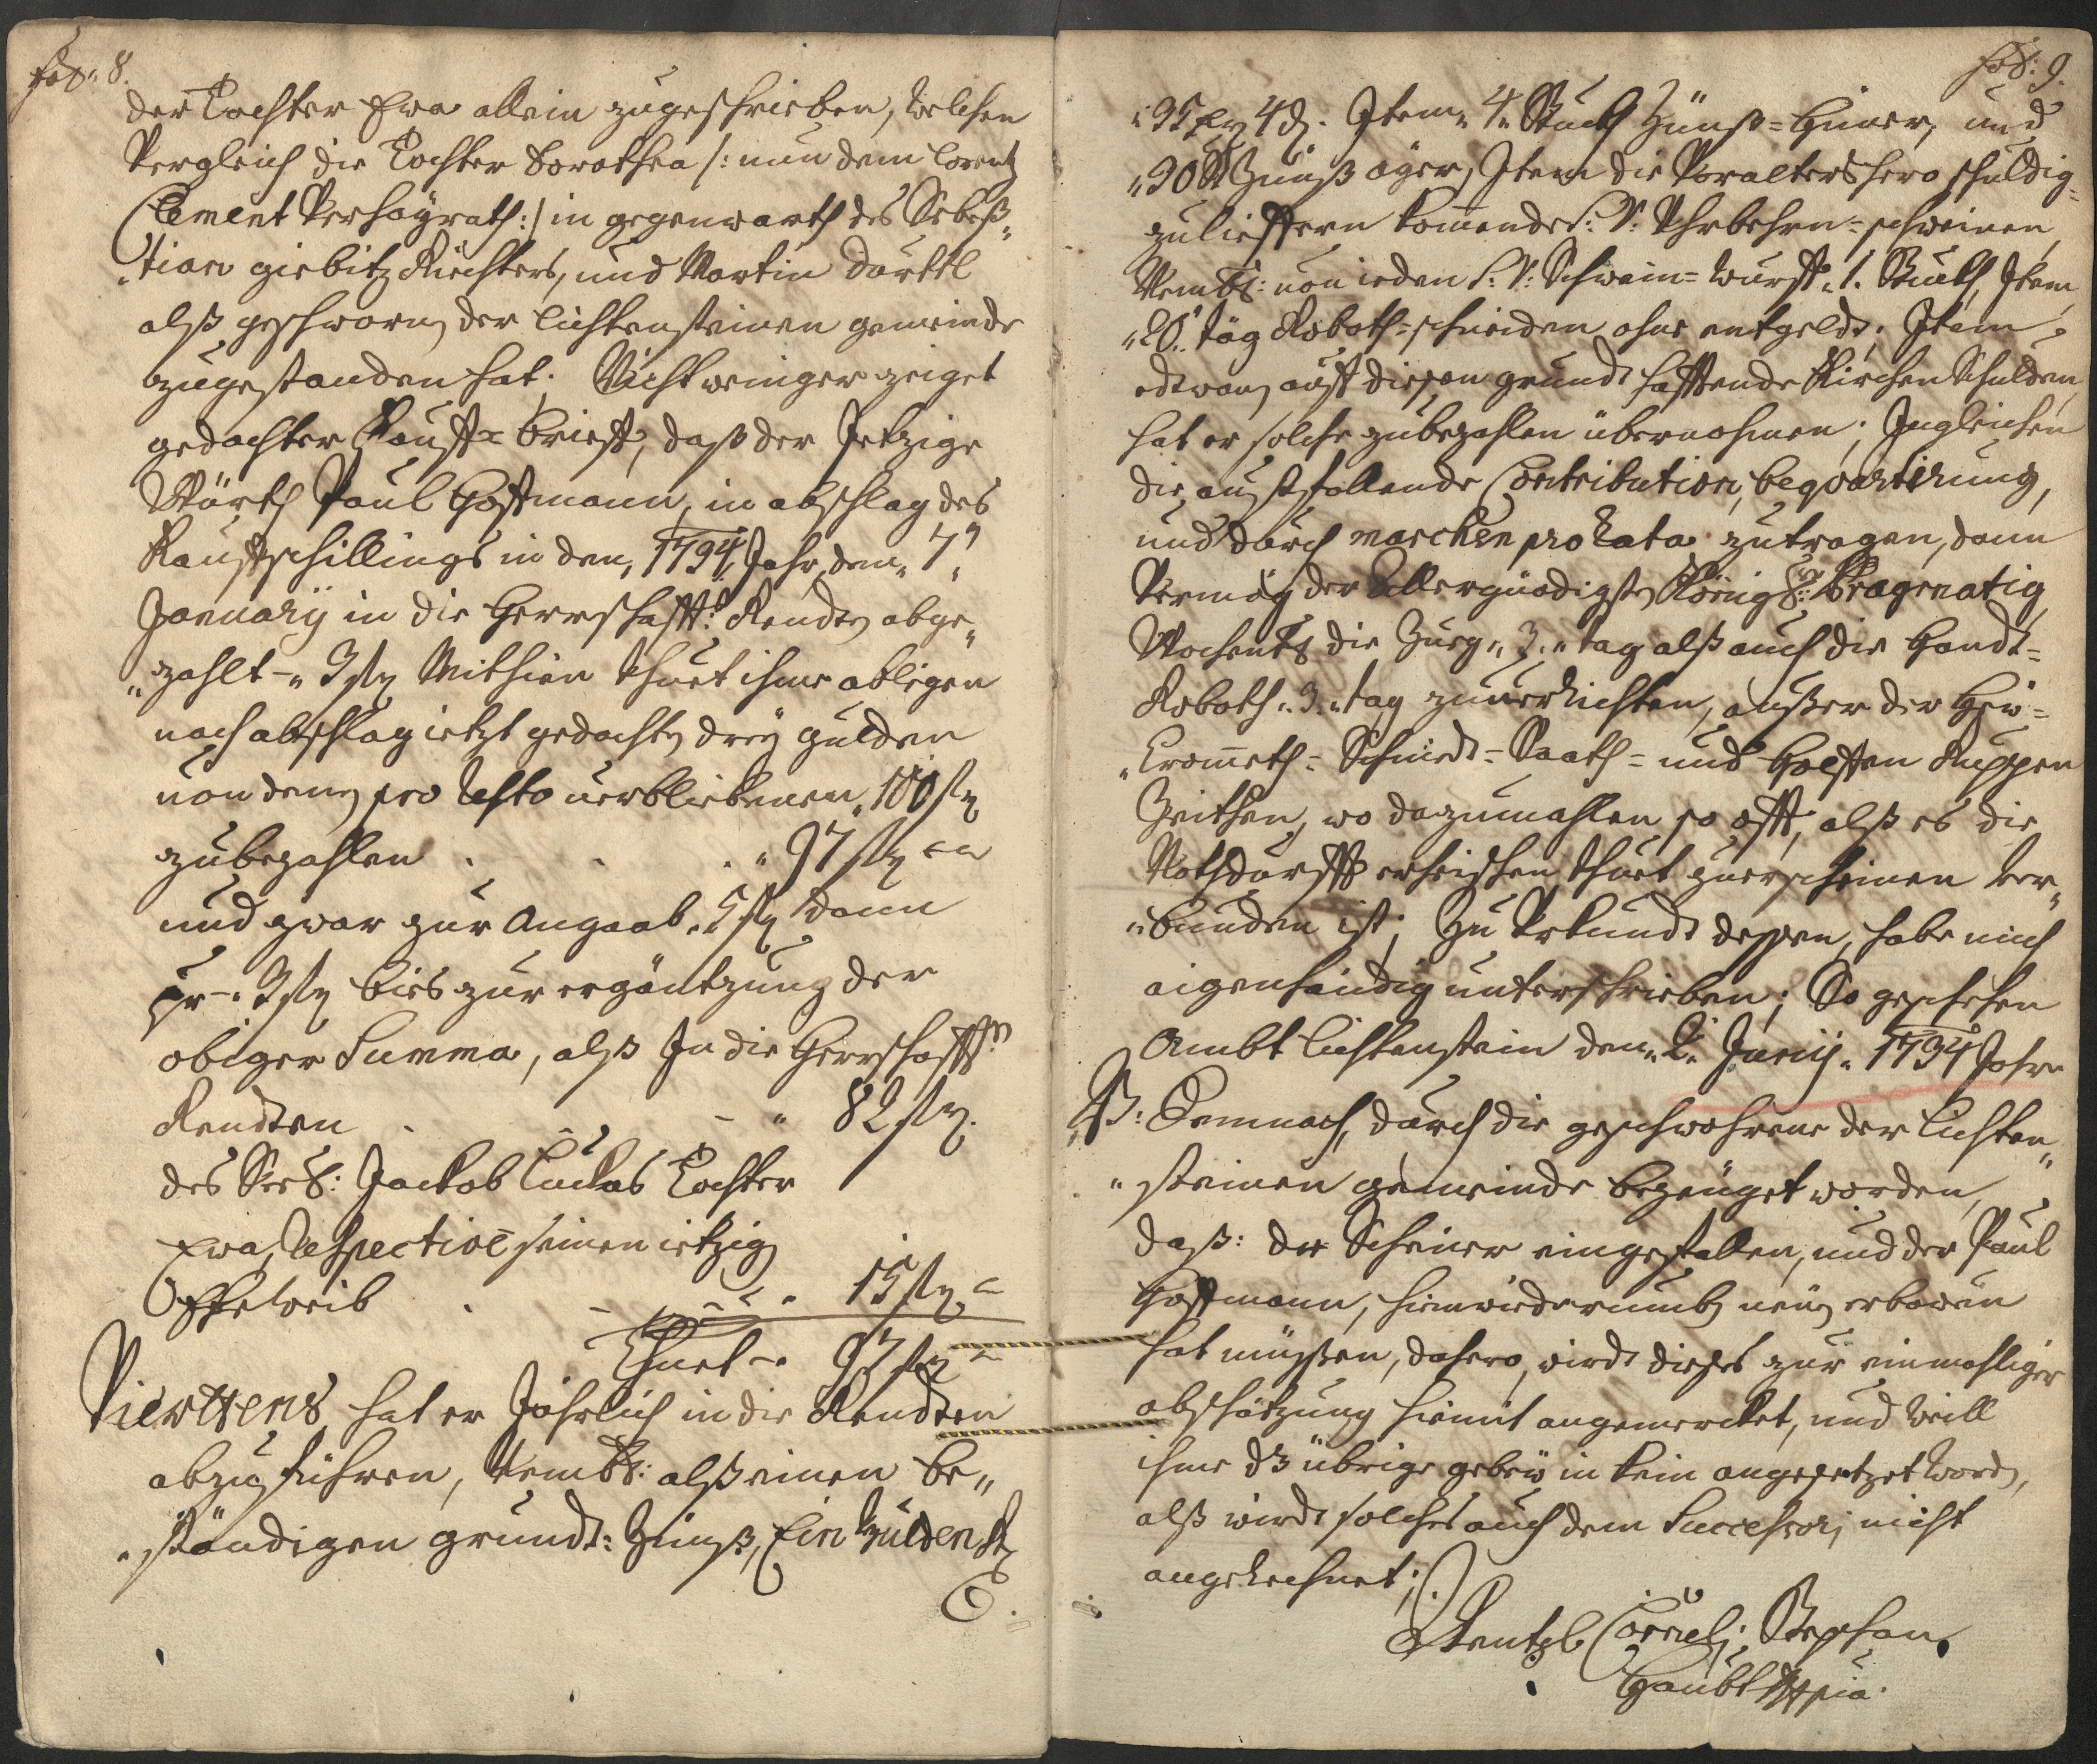 fol: 8.
der Tochter Ewa allein zugeschrieben, welchen
Vergleich die Tochter Dorothea /: nun dem Lorentz
Clement Verhayrath :/ in gegenwarth des Sebes„
„tian giebitz Richters, und Martin
alß geschworn der lichtensteiner gemeinde
zugestanden hat. Nicht weniger zeiget
gedachter Kauff= brieff, daß der Jetzige
Würth Paul Hoffmann, in abschlag des
Kauffschillings in den „1734 Jahr, den „7„
January in die Herrschafftl: Rendten abge„
„zahlt – „3 fl Mithin thuet ihme obligen
nach abschlag ietzt gedachte drey gulden
von denen pro Resto verbliebenen „100 fl
zubezahlen . . . „97 fl
und zwar zur Angaab „5 fl dann
pr – „3 fl bies zur ergäntzung der
obiger Summa, alß In die Herrschafftl:
Rendten . – „ 82 fl.
des Seel: Jackob Luckas Tochter
Ewa, Respective seinen ietzigen
Eheweib . – „ 15 fl
Thuet – „ 97 fl
Viertens hat er Jährlich in die Rendten
abzuführen, Nembl: alß einen be„
„ständigen grundt= Zünß, Ein Gulden
fol: 9.
„35 xr 4 d. Item „4„ Stuckh Zünß= Hüner, und
„30 St Zünß äyer, Item die Voraltershero schuldig=
zulieffern komende S: V: = schweinen,
Nembl: von ieden S: V: Schwein= Wurst „1. Stuckh, Item
„20„ täg Roboth= schneiden ohne entgeldt; Item
edtwan auff diesen grundt hafftende Kirchen Schulden,
hat er solche zubezahlen übernohmen; Ingleichen
die außfallende Contribution, beqvartirung,
und durch marchen pro Rata zutragen, dann
Vermög der Allergnädigsten Königl: Pragmatig
Wochentl die Zueg „3.„ tag alß auch die Handt=
Roboth „3.„ tag zuverrichten, außer der Hew=
„Crometh= Schniedt= Saath= und Hopffen
Zeithen, wo dazumahlen so offt, alß es die
Nothdurfft erheischen thuet zuerscheinen ver„
„bunden ist; Zu Vrkundt dessen, habe mich
aigenhändig unterschrieben; So geschehen
Ambt lichtenstein den „2„ Junij „ 1734 Jahr
NB: Demnach, durch die geschwohrene der lichten„
„steiner gemeinde bezeuget worden,
daß: der Scheuer eingefallen, und der Paul
Hoffmann, hinwiederumb neu erbawen
hat müssen, dahero wirdt dieses zur einmahliger
abschätzung hiemit angemercket, und weill
ihme dz übrige gebew in kein angesetzet word,
alß wirdt solches auch dem Successorj nicht
angerechnet;
Wentzl Cornelj Stephan
Haubt